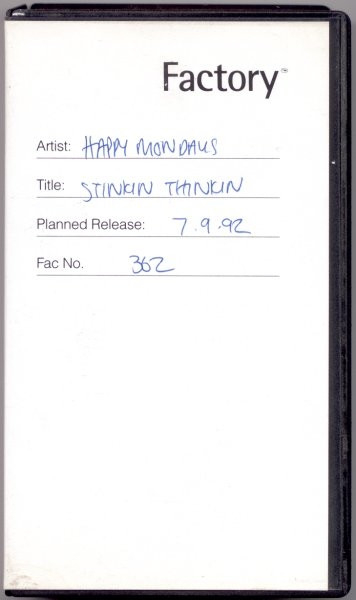 Factory™
Artist: HAPPY MONDAYS
Title: STINKIN THINKIN
Planned Release: 7.9.92
Fac No. 362